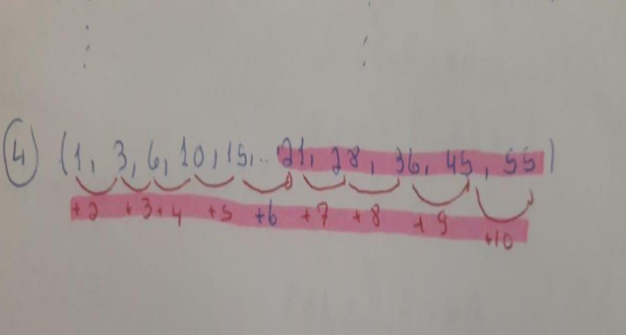 4 (1, 3, 6, 10, 15, .. 21, 28, 36, 45, 55)
+2 +3 +4 +5 +6 +7 +8 +9 +10